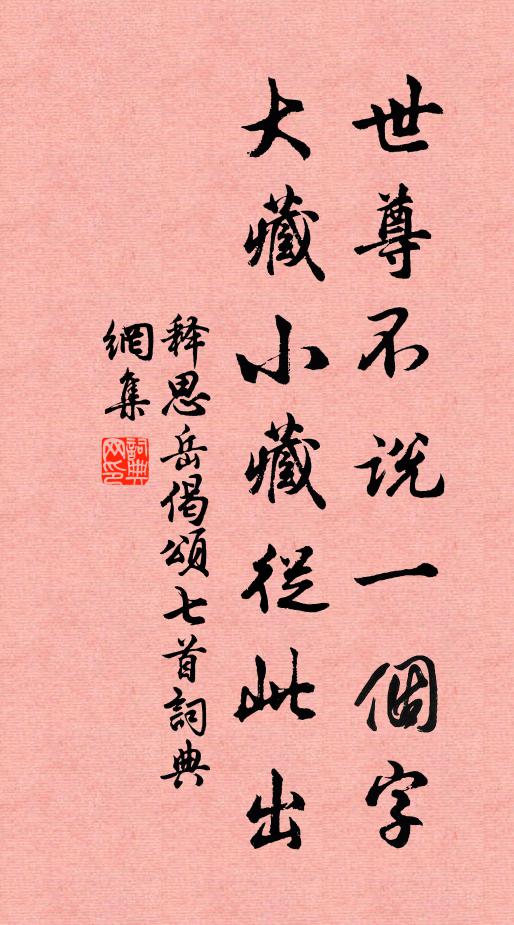 世尊不説一個字
大藏小藏從此出
释思岳偈頌七首詞典
網集
詞典
网印